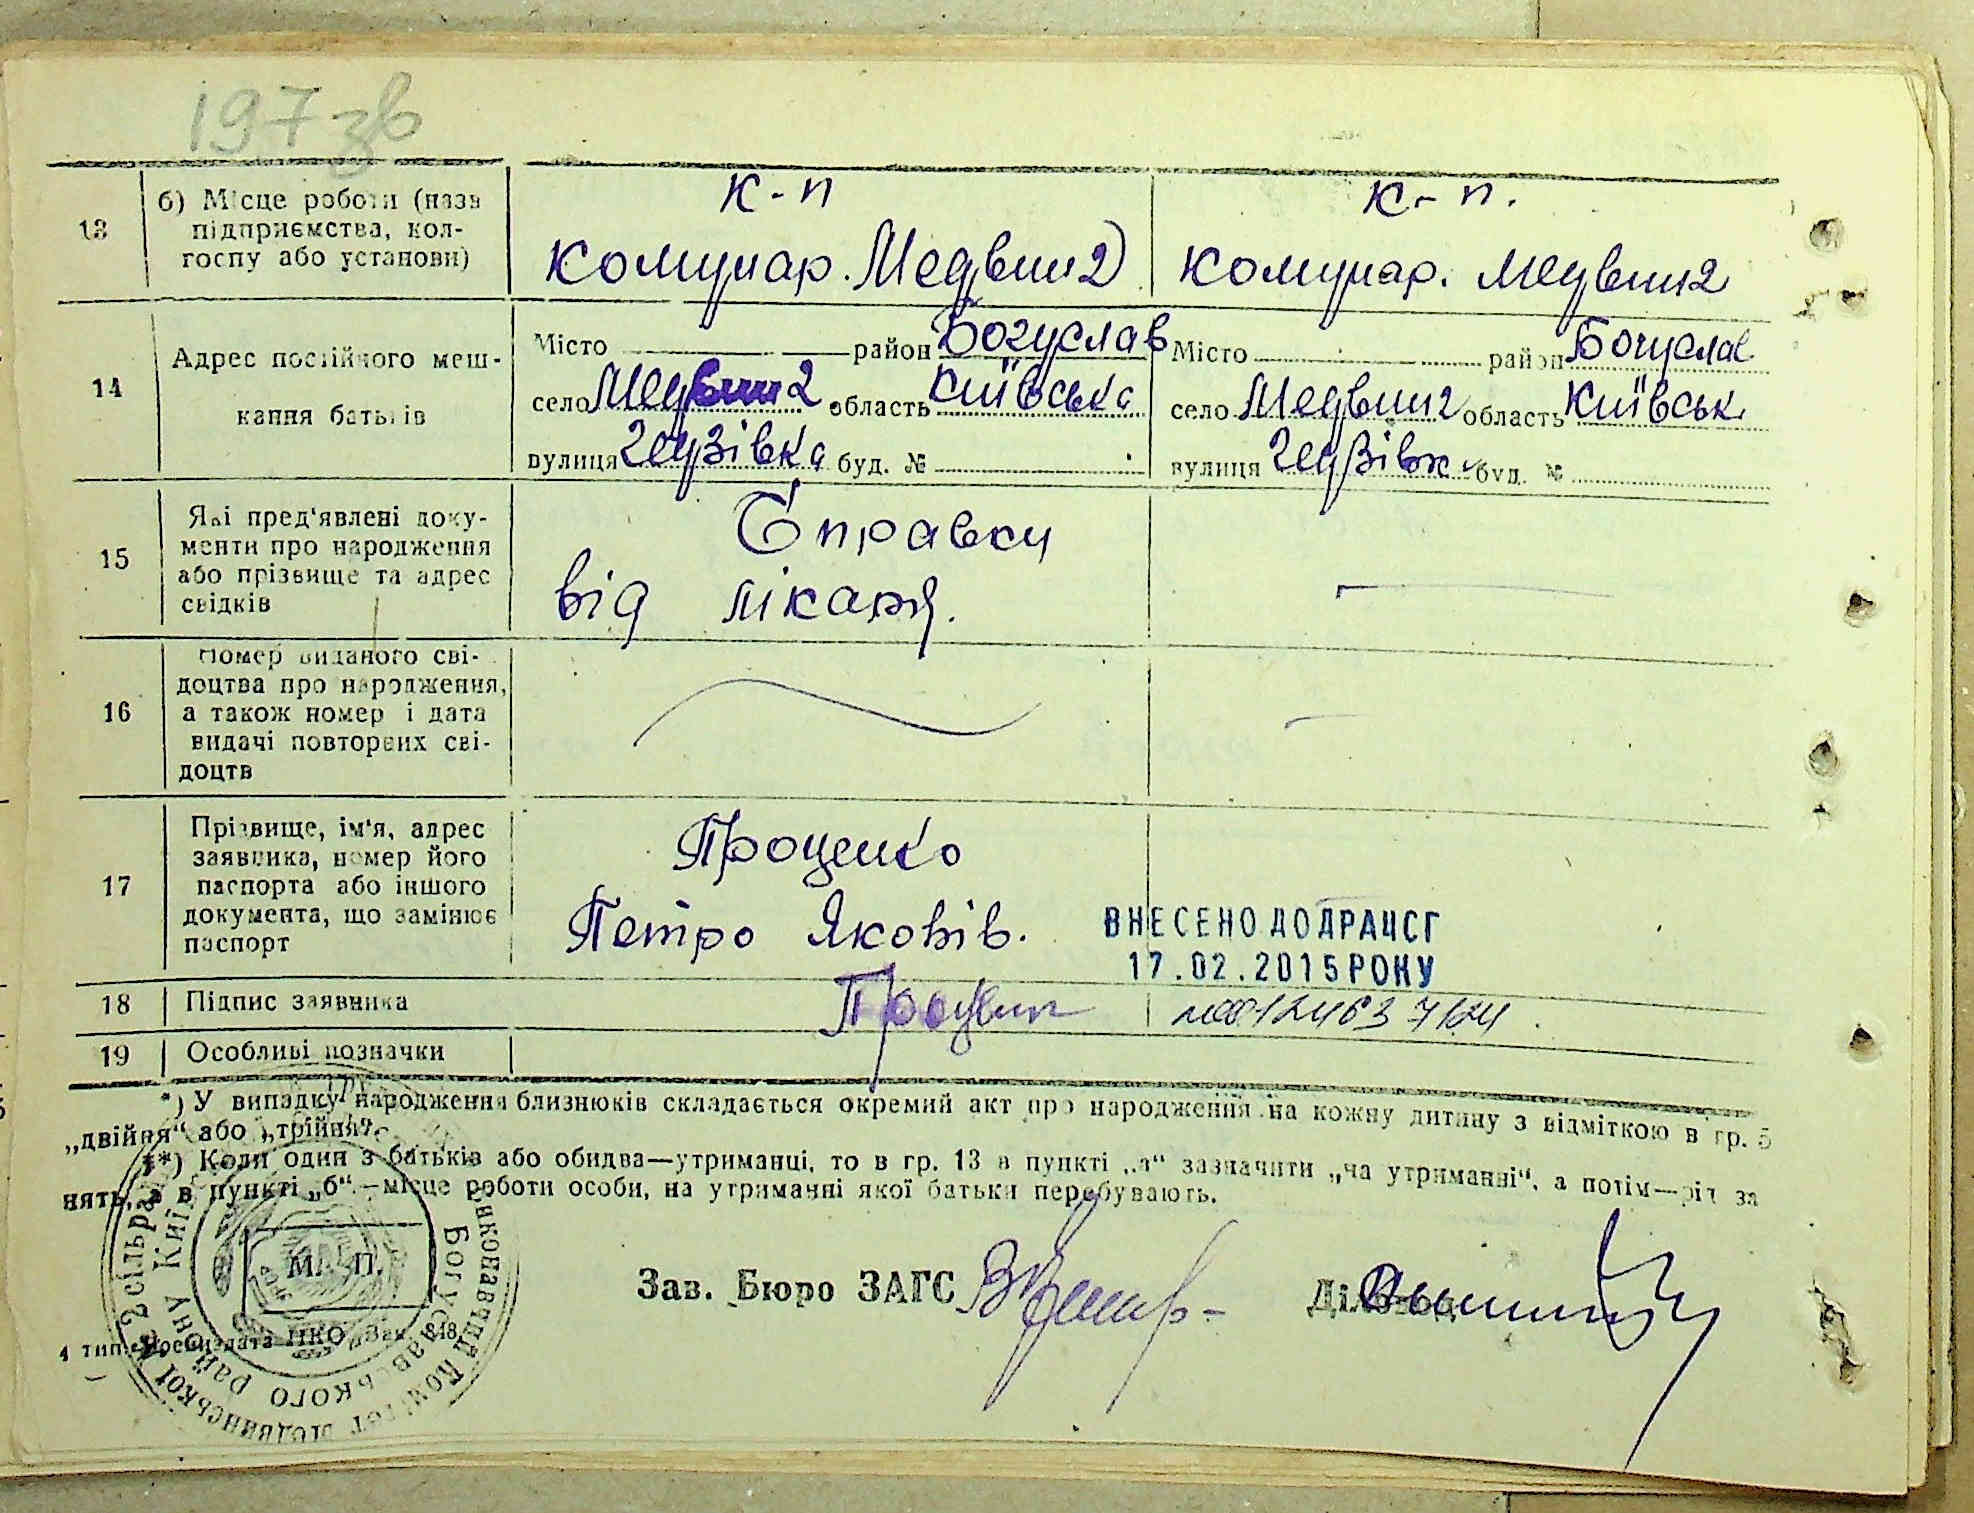 197 зв
13
б) Місце роботи (назв
підприємства, кол-
госпу або установи)
к-п
комунар. Медвин 2
к-п.
комунар. Медвин 2
14
Адрес постійного меш-
кання батьків
Місто район Богуслав
село Медвин 2 область Київська
вулиця буд. №
Місто район Богуслав
село Медвин 2 область Київськ
вулиця буд. №
15
Які пред'явлені доку-
менти про народження
або прізвище та адрес
свідків
Справку
від лікаря.
16
Номер виданого сві-
доцтва про народження,
а також номер і дата
видачі повторених сві-
доцтв
17
Прізвище, ім'я, адрес
заявника, номер його
паспорта або іншого
документа, що замінює
паспорт
Проценко
Петро Яковів.
ВНЕСЕНО ДО ДРАЦСГ
17.02.2015 РОКУ
18 Підпис заявника
19 Особливі позначки
*) У випадку народження близнюків складається окремий акт про народження на кожну дитину з відміткою в гр. 5
„двійня“ або „трійня“.
**) Коли один з батьків або обидва—утриманці, то в гр. 13 в пункті „а“ зазначити „на утриманні“, а потім—рід за
нять, а в пункті „б“—місце роботи особи, на утриманні якої батьки перебувають.
М. П.
Зав. Бюро ЗАГС
Діловод